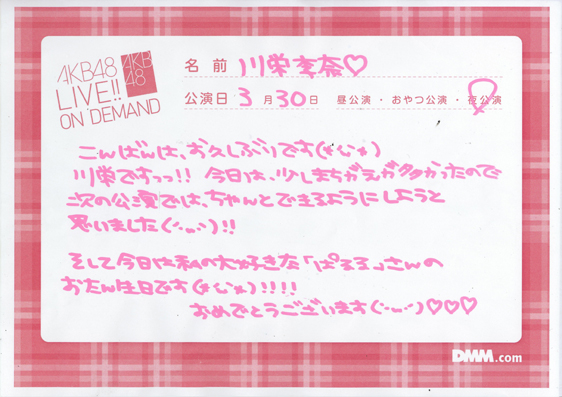 AKB48
LIVE!!
ON DEMAND
AKB
48
名前 川栄李奈♡
公演日 3月30日 昼公演・おやつ公演・夜公演
こんばんは、お久しぶりです(*´`*)
川栄ですっっ!! 今日は、少しまちがえが多かったので
次の公演では、ちゃんとできるようにしようと
思いました(´・ω・`)!!
そして今日は私の大好きな「ぱるる」さんの
おたん生日です(*´`*)!!!!
おめでとうございます(´・ω・`)♡♡♡
DMM.com